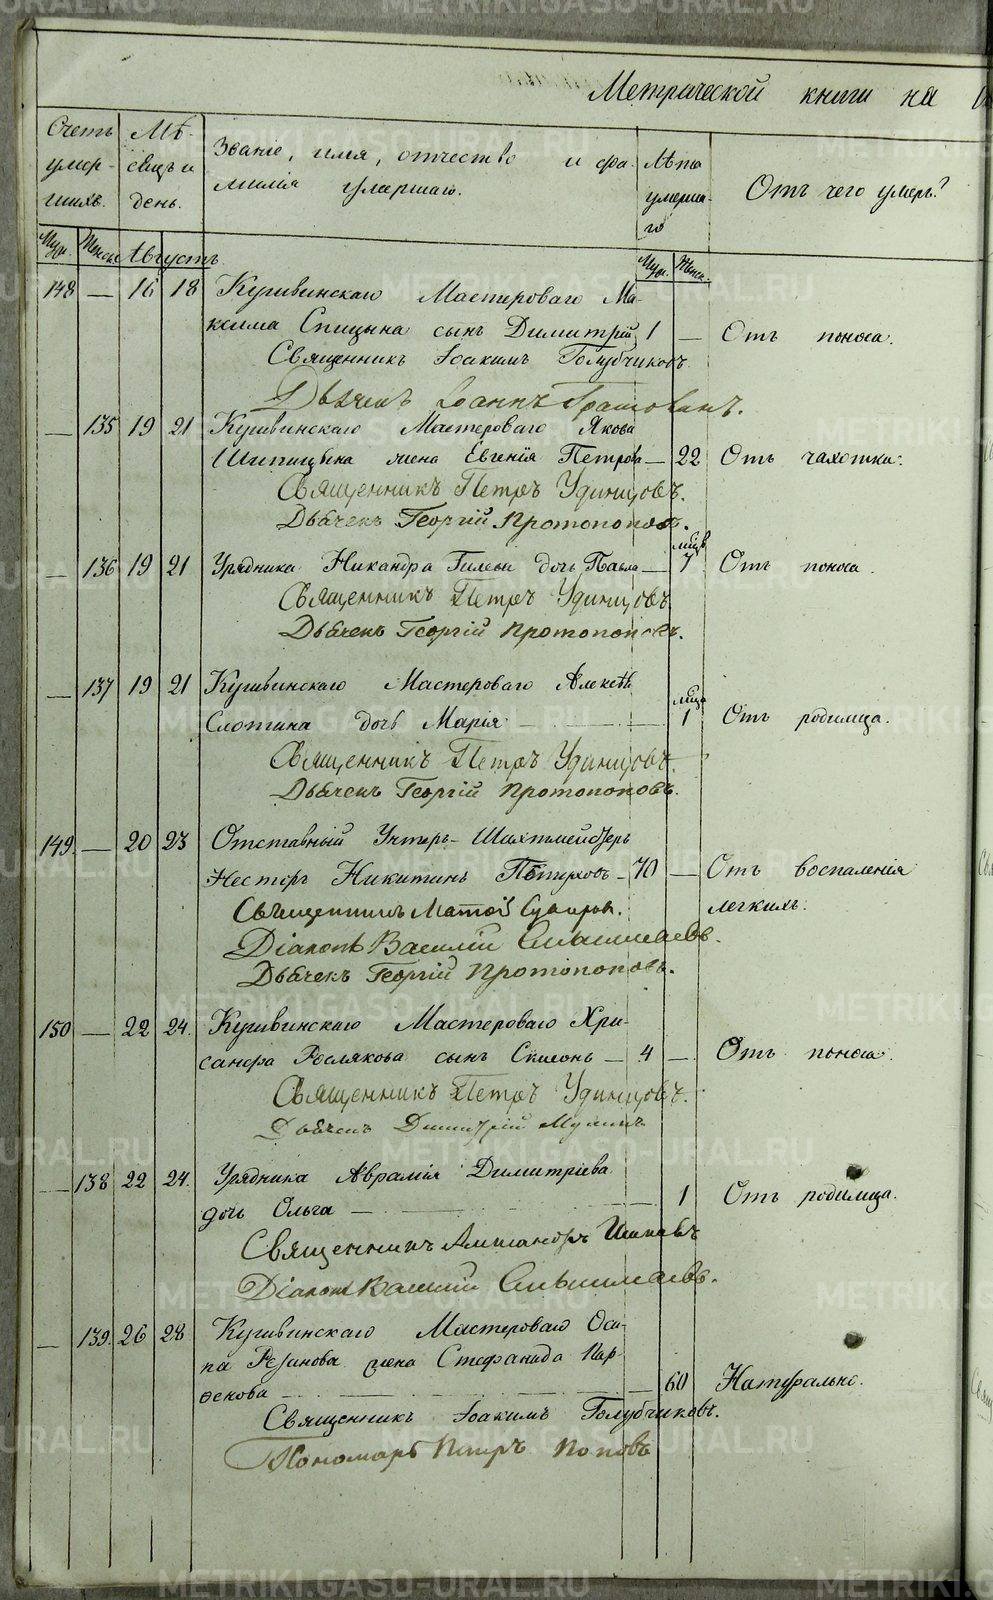 Метрической книги на
Счетъ умер- шихъ.
Мѣ- сяцъ и день.
Званіе, имя, отчество и фа- милія умершаго.
Лѣта умерша- го
Отъ чего умеръ?
Муж. Женск. Августъ. Муж. Женск.
148 — 16 18 Кушвинскаго Мастероваго Ма-
ксима Спицына сынъ Димитрій 1 — Отъ поноса.
Священникъ Іоакимъ Голубчиковъ
Дьячекъ Іоаннъ
— 135 19 21 Кушвинскаго Мастероваго Якова
Шипицына жена Евгенія Петрова — 22 Отъ чахотки.
Священникъ Петръ Удинцовъ.
Дьячекъ Георгій Протопоповъ.
— 136 19 21 Урядника Никандра Гилева дочь Павла — 7 мѣсяцъ Отъ поноса.
Священникъ Петръ Удинцовъ.
Дьячекъ Георгій Протопоповъ.
— 137 19 21 Кушвинскаго Мастероваго Алексѣя
Слотина дочь Марія — 1 мѣсяца Отъ родимца.
Священникъ Петръ Удинцовъ.
Дьячекъ Георгій Протопоповъ.
149. — 20 23 Отставный Унтеръ-Шихтмейстеръ
Несторъ Никитинъ — 70 — Отъ воспаленія
легкихъ.
Священникъ
Діаконъ Василій
Дьячекъ Георгій Протопоповъ.
150 — 22 24. Кушвинскаго Мастероваго Хри-
санфа Рослякова сынъ Симеонъ — 4 — Отъ поноса.
Священникъ Петръ Удинцовъ.
Дьячекъ Димитрій
— 138 22 24. Урядника Аврамія Димитріева
дочь Ольга — 1 Отъ родимца.
Священникъ Александръ
Діаконъ Василій
— 139. 26 28 Кушвинскаго Мастероваго Оси-
па Резанова жена Стефанида Пар-
ѳенова — 60 Натурально.
Священникъ Іоакимъ Голубчиковъ.
Пономарь Петръ Поповъ
METRIKI.GASO-URAL.RU